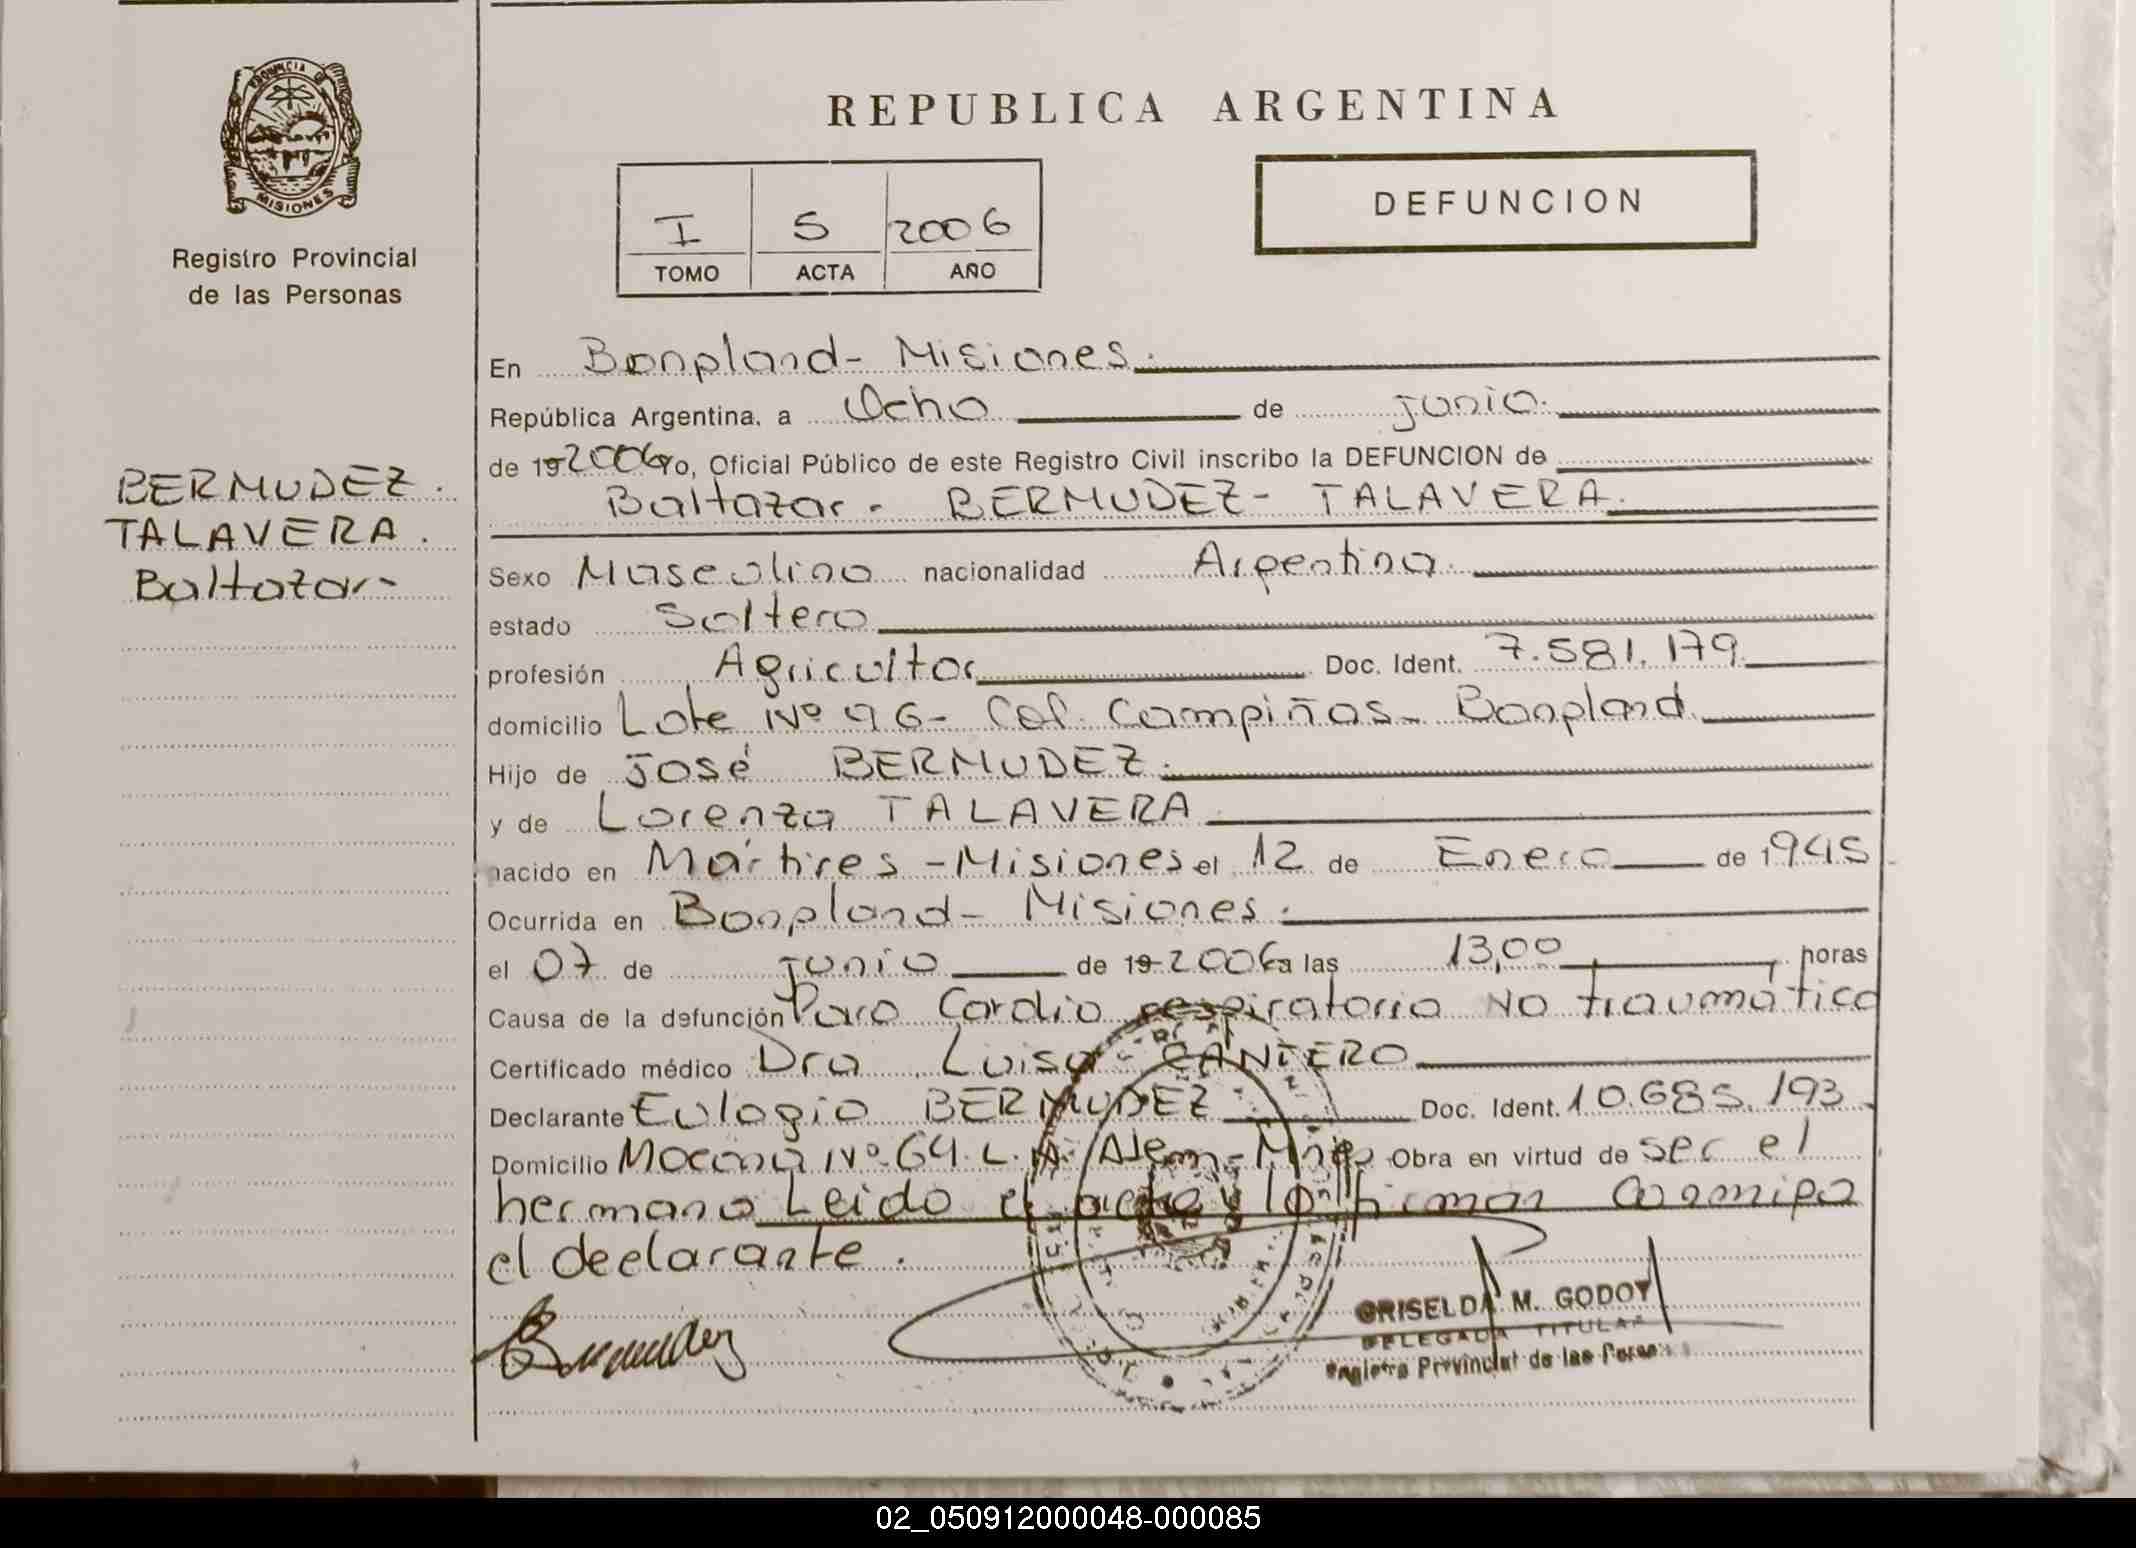 PROVINCIA DE
MISIONES
Registro Provincial
de las Personas
BERMUDEZ.
TALAVERA.
Baltazar-
REPUBLICA ARGENTINA
I 5 2006
TOMO ACTA AÑO
DEFUNCION
En Bonpland- Misiones.
República Argentina, a Ocho de junio.
de 192006 Yo, Oficial Público de este Registro Civil inscribo la DEFUNCION de
Baltazar- BERMUDEZ- TALAVERA.
Sexo Masculino nacionalidad Argentina.
estado Soltero
profesión Agricultor Doc. Ident. 7.581.179
domicilio Lote Nº 96- Col. Campiñas- Bonpland
Hijo de José BERMUDEZ.
y de Lorenza TALAVERA
nacido en Mártires - Misiones el 12 de Enero de 1945
Ocurrida en Bonpland- Misiones.
el 07 de junio de 19 2006 a las 13,00 horas
Causa de la defunción Paro Cardio respiratorio No traumático
Certificado médico Dra Luisa CANTERO
Declarante Eulogio BERMUDEZ Doc. Ident. 10.685.193
Domicilio Mocona Nº 64. L. A. Alem- Mnes Obra en virtud de ser el
hermano Leido el acta y lo firman conmigo
el declarante.
Bermudez
GRISELDA M. GODOY
DELEGADA TITULAR
Registro Provincial de las Personas
02_050912000048-000085